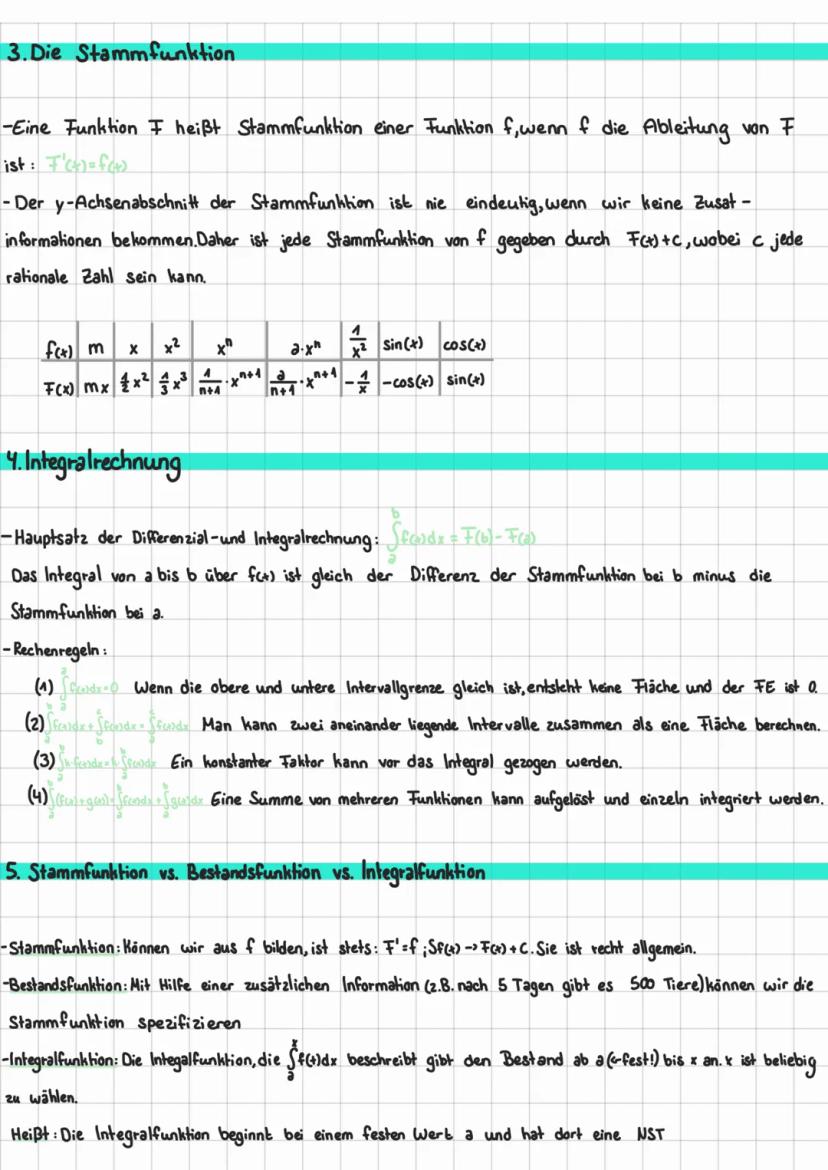 3. Die Stammfunktion
-Eine Funktion F heißt Stammfunktion einer Funktion f, wenn f die Ableitung von F
ist: F'(x)=f(x)
-Der y-Achsenabschnitt der Stammfunktion ist nie eindeutig, wenn wir keine Zusat-
informationen bekommen. Daher ist jede Stammfunktion von f gegeben durch F(x)+c, wobei c jede
rationale Zahl sein kann.
f(x) | m | x | x² | xⁿ | a·xⁿ | 1/x² | sin(x) | cos(x)
F(x) | mx | 1/2 x² | 1/3 x³ | 1/(n+1) · xⁿ⁺¹ | a/(n+1) · xⁿ⁺¹ | -1/x | -cos(x) | sin(x)
4. Integralrechnung
-Hauptsatz der Differenzial-und Integralrechnung: ∫ₐᵇ f(x)dx = F(b)-F(a)
Das Integral von a bis b über f(x) ist gleich der Differenz der Stammfunktion bei b minus die
Stammfunktion bei a.
-Rechenregeln:
(1) ∫ₐᵃ f(x)dx=0 Wenn die obere und untere Intervallgrenze gleich ist, entsteht keine Fläche und der FE ist 0.
(2) ∫ₐᵇ f(x)dx + ∫ᵇᶜ f(x)dx = ∫ₐᶜ f(x)dx Man kann zwei aneinander liegende Intervalle zusammen als eine Fläche berechnen.
(3) ∫ₐᵇ k·f(x)dx=k·∫ₐᵇ f(x)dx Ein konstanter Faktor kann vor das Integral gezogen werden.
(4) ∫ₐᵇ (f(x)+g(x))=∫ₐᵇ f(x)dx+∫ₐᵇ g(x)dx Eine Summe von mehreren Funktionen kann aufgelöst und einzeln integriert werden.
5. Stammfunktion vs. Bestandsfunktion vs. Integralfunktion
-Stammfunktion: Können wir aus f bilden, ist stets: F'=f ; Sf(x) -> F(x) + C. Sie ist recht allgemein.
-Bestandsfunktion: Mit Hilfe einer zusätzlichen Information (z.B. nach 5 Tagen gibt es 500 Tiere) können wir die
Stammfunktion spezifizieren
-Integralfunktion: Die Integalfunktion, die ∫ₐˣ f(t)dx beschreibt gibt den Bestand ab a (←fest!) bis x an. x ist beliebig
zu wählen.
Heißt: Die Integralfunktion beginnt bei einem festen Wert a und hat dort eine NST